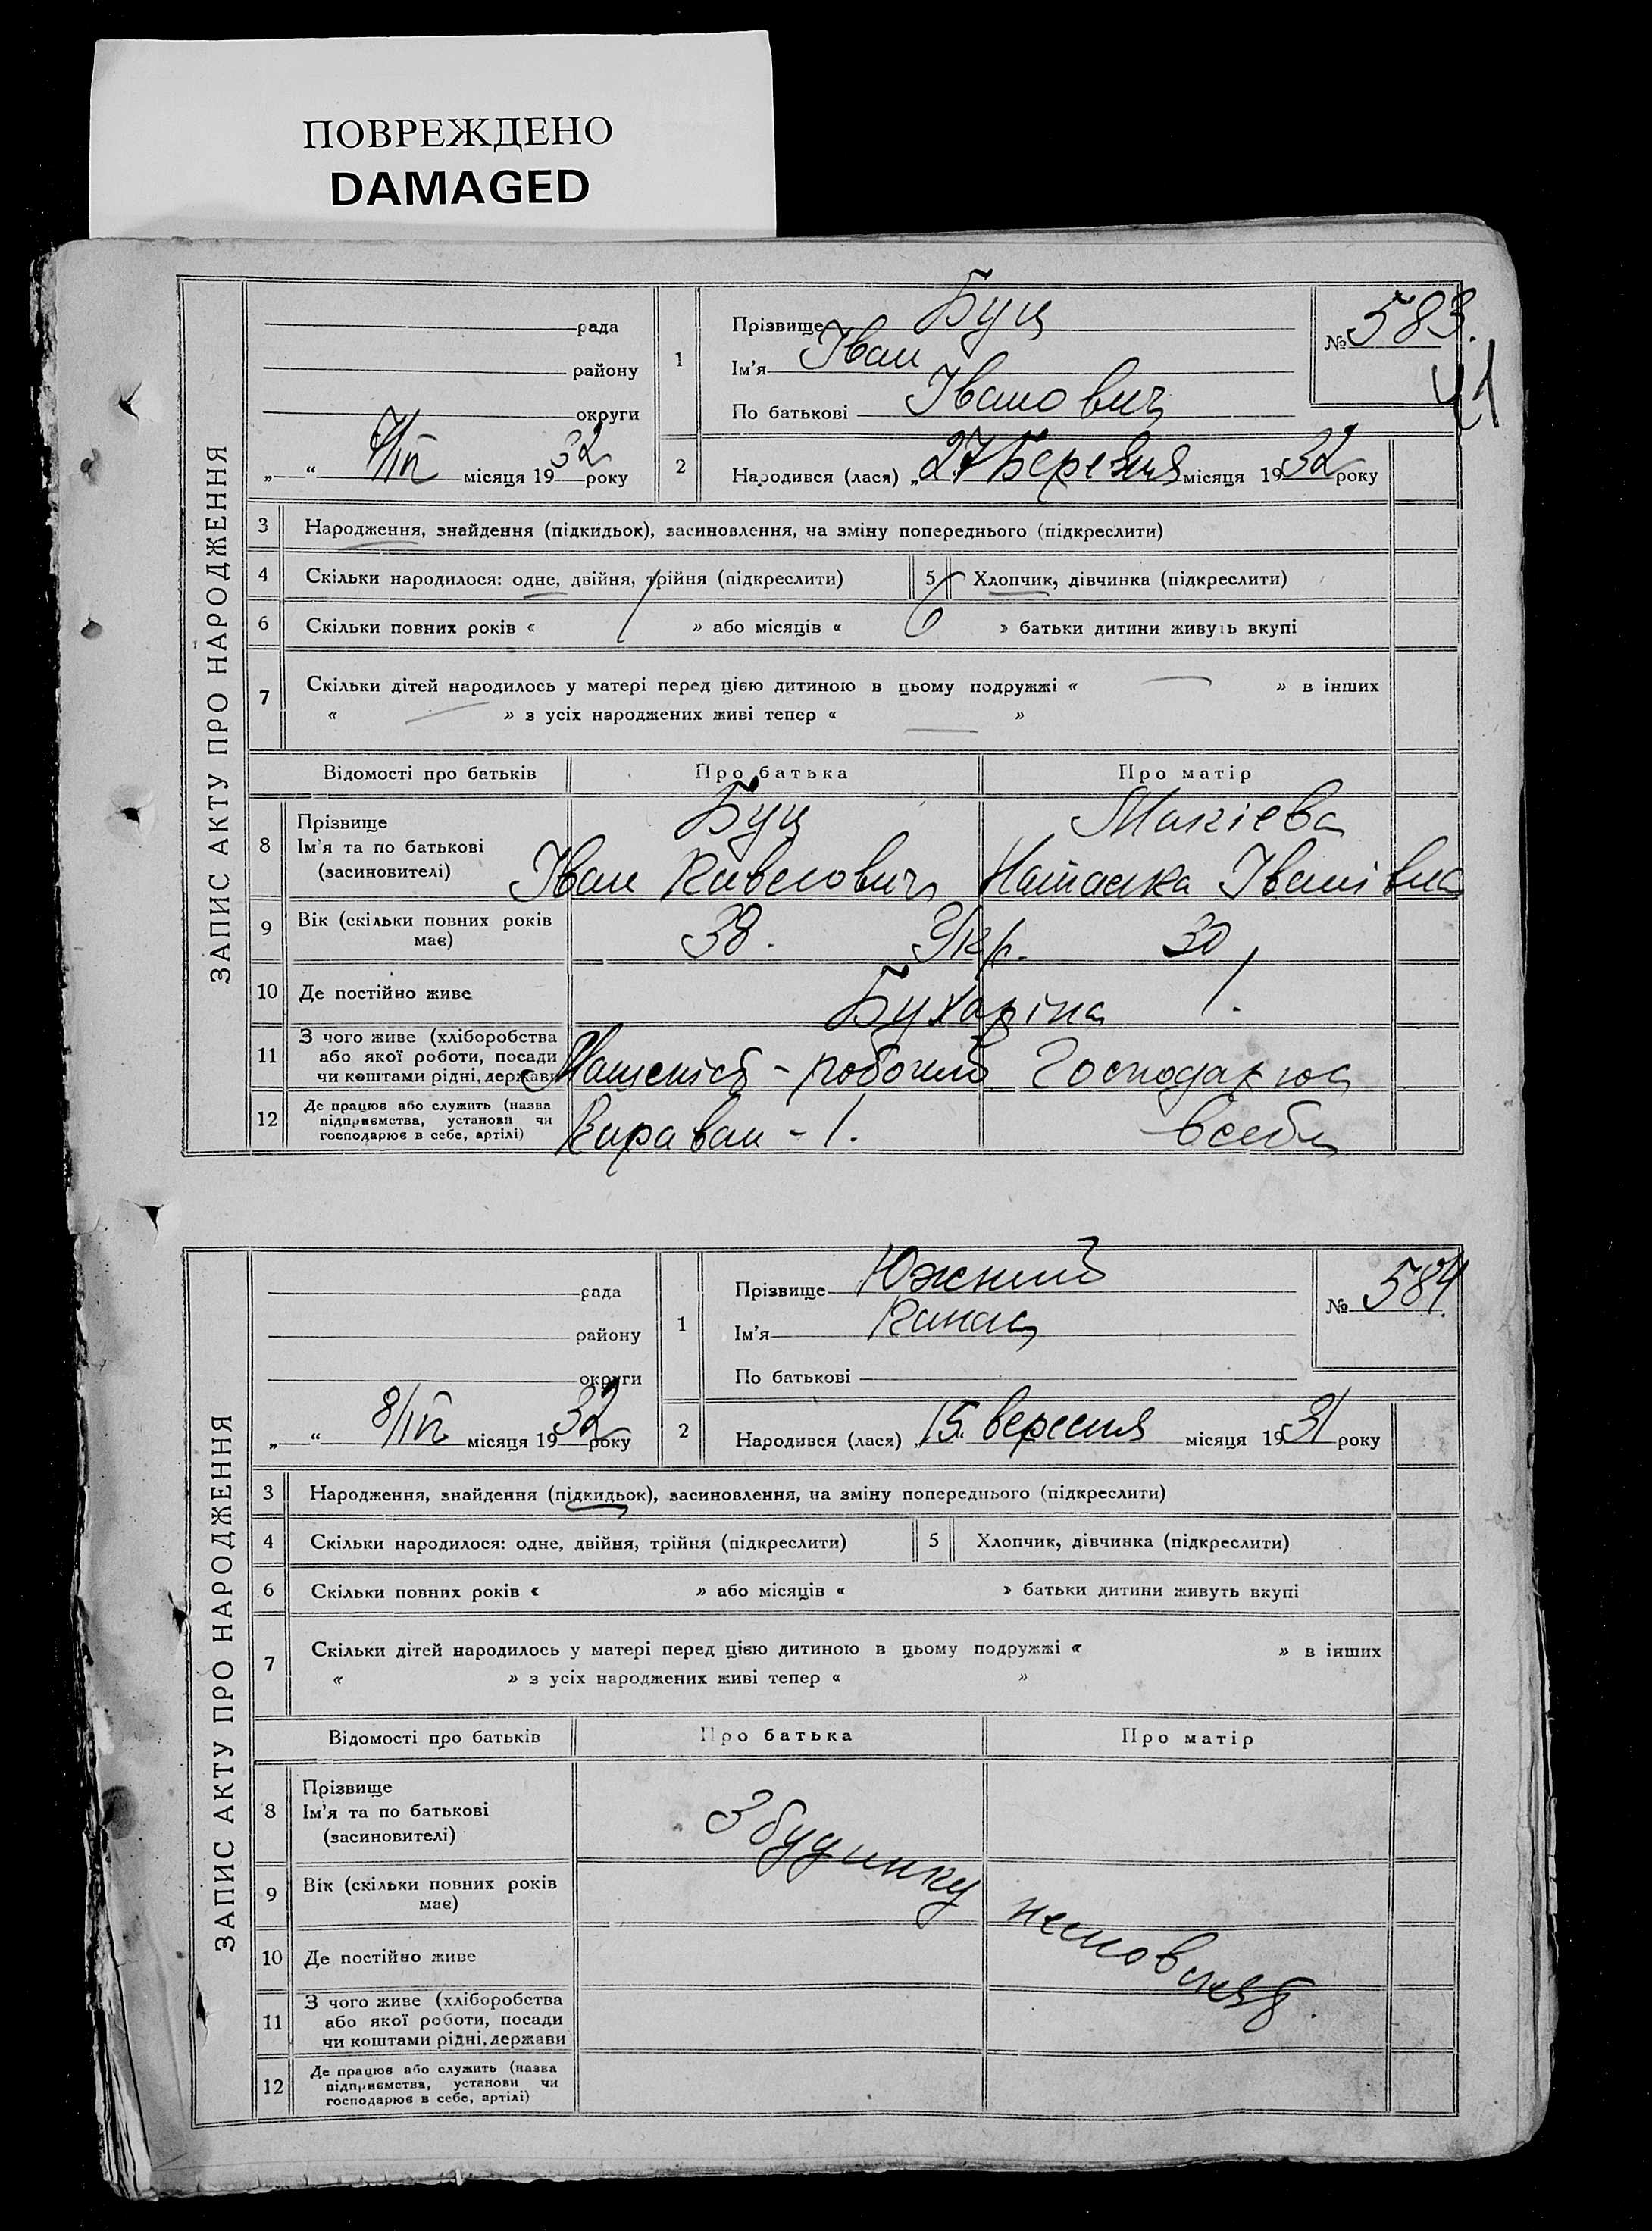 ПОВРЕЖДЕНО
DAMAGED
ЗАПИС АКТУ ПРО НАРОДЖЕННЯ
рада
району
округи
„ “ 7/IV місяця 1932 року
1
Прізвище Буц
Ім'я Іван
По батькові Іванович
№ 583.
2
Народився (лася) „27 Березня місяця 1932 року
3 Народження, знайдення (підкидьок), засиновлення, на зміну попереднього (підкреслити)
4 Скільки народилося: одне, двійня, трійня (підкреслити)
5 Хлопчик, дівчинка (підкреслити)
6 Скільки повних років « » або місяців « 6 » батьки дитини живуть вкупі
7 Скільки дітей народилось у матері перед цією дитиною в цьому подружжі « — » в інших
« — » з усіх народжених живі тепер « — »
Відомості про батьків Про батька Про матір
8 Прізвище
Ім'я та по батькові
(засиновителі)
Буц
Іван
Іванівна
9 Вік (скільки повних років
має)
38. Укр. 30
10 Де постійно живе
Бухаріна 1.
11 З чого живе (хліборобства
або якої роботи, посади
чи коштами рідні, держави
робочий Господарює
12 Де працює або служить (назва
підприємства, установи чи
господарює в себе, артілі)
Караван - 1. в себе
ЗАПИС АКТУ ПРО НАРОДЖЕННЯ
рада
району
округи
„ “ 8/IV місяця 1932 року
1
Прізвище Южний
Ім'я
По батькові
№ 584.
2
Народився (лася) „15“ вересня місяця 1931 року
3 Народження, знайдення (підкидьок), засиновлення, на зміну попереднього (підкреслити)
4 Скільки народилося: одне, двійня, трійня (підкреслити)
5 Хлопчик, дівчинка (підкреслити)
6 Скільки повних років « » або місяців « » батьки дитини живуть вкупі
7 Скільки дітей народилось у матері перед цією дитиною в цьому подружжі « » в інших
« » з усіх народжених живі тепер « »
Відомості про батьків Про батька Про матір
8 Прізвище
Ім'я та по батькові
(засиновителі)
9 Вік (скільки повних років
має)
10 Де постійно живе
11 З чого живе (хліборобства
або якої роботи, посади
чи коштами рідні, держави
12 Де працює або служить (назва
підприємства, установи чи
господарює в себе, артілі)
З будинку немовлят.